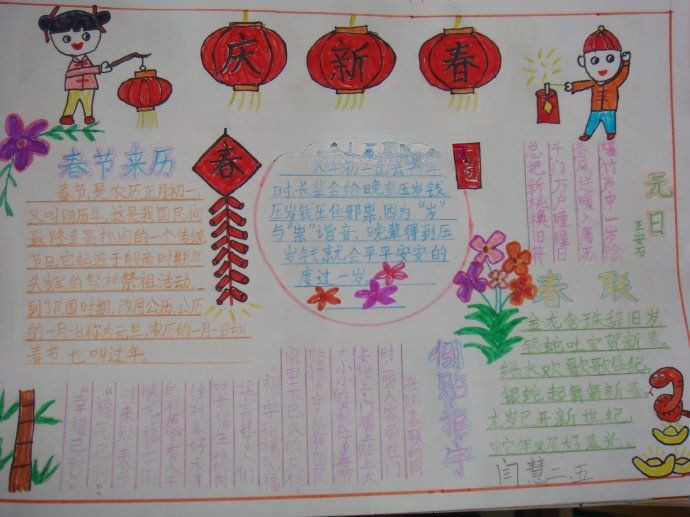 庆 新 春
春节来历
春节,是农历正月初一,
又叫阴历年,这是我国民间
最隆重最热闹的一个传统
节日。它起源于殷商时期年
头岁尾的祭神祭祖活动.
到了民国时期,改用公历,公历
的一月一日称为元旦,农历的一月一日叫
春节,也叫过年。
春
时长辈会给晚辈压岁钱
压岁钱压住邪祟,因为“岁”
与“祟”谐音,晚辈得到压
岁钱就会平平安安的
度过一岁。
元日
王安石
爆竹声中一岁除
春风送暖入屠苏
千门万户瞳瞳日
总把新桃换旧符
春联
金龙含珠辞旧岁
银蛇吐宝贺新春。
绿水欢歌歌盛纪
银蛇起舞舞新春。
龙岁已开新世纪
蛇年又
倒贴福字
在贴春联的同
时,一些人家要在门
上、墙上、门楣上贴上大
大小小的“福”字。春节
贴“福”字,是我国民
间由来已久的风俗
“福”字指福气、福
运,寄托了人们
对幸福生活的向
往,对美好未来
的祝愿。有人干
脆把“福”字倒
过来贴,表示
“福气已到”
“幸福已到”。
闫慧二、五